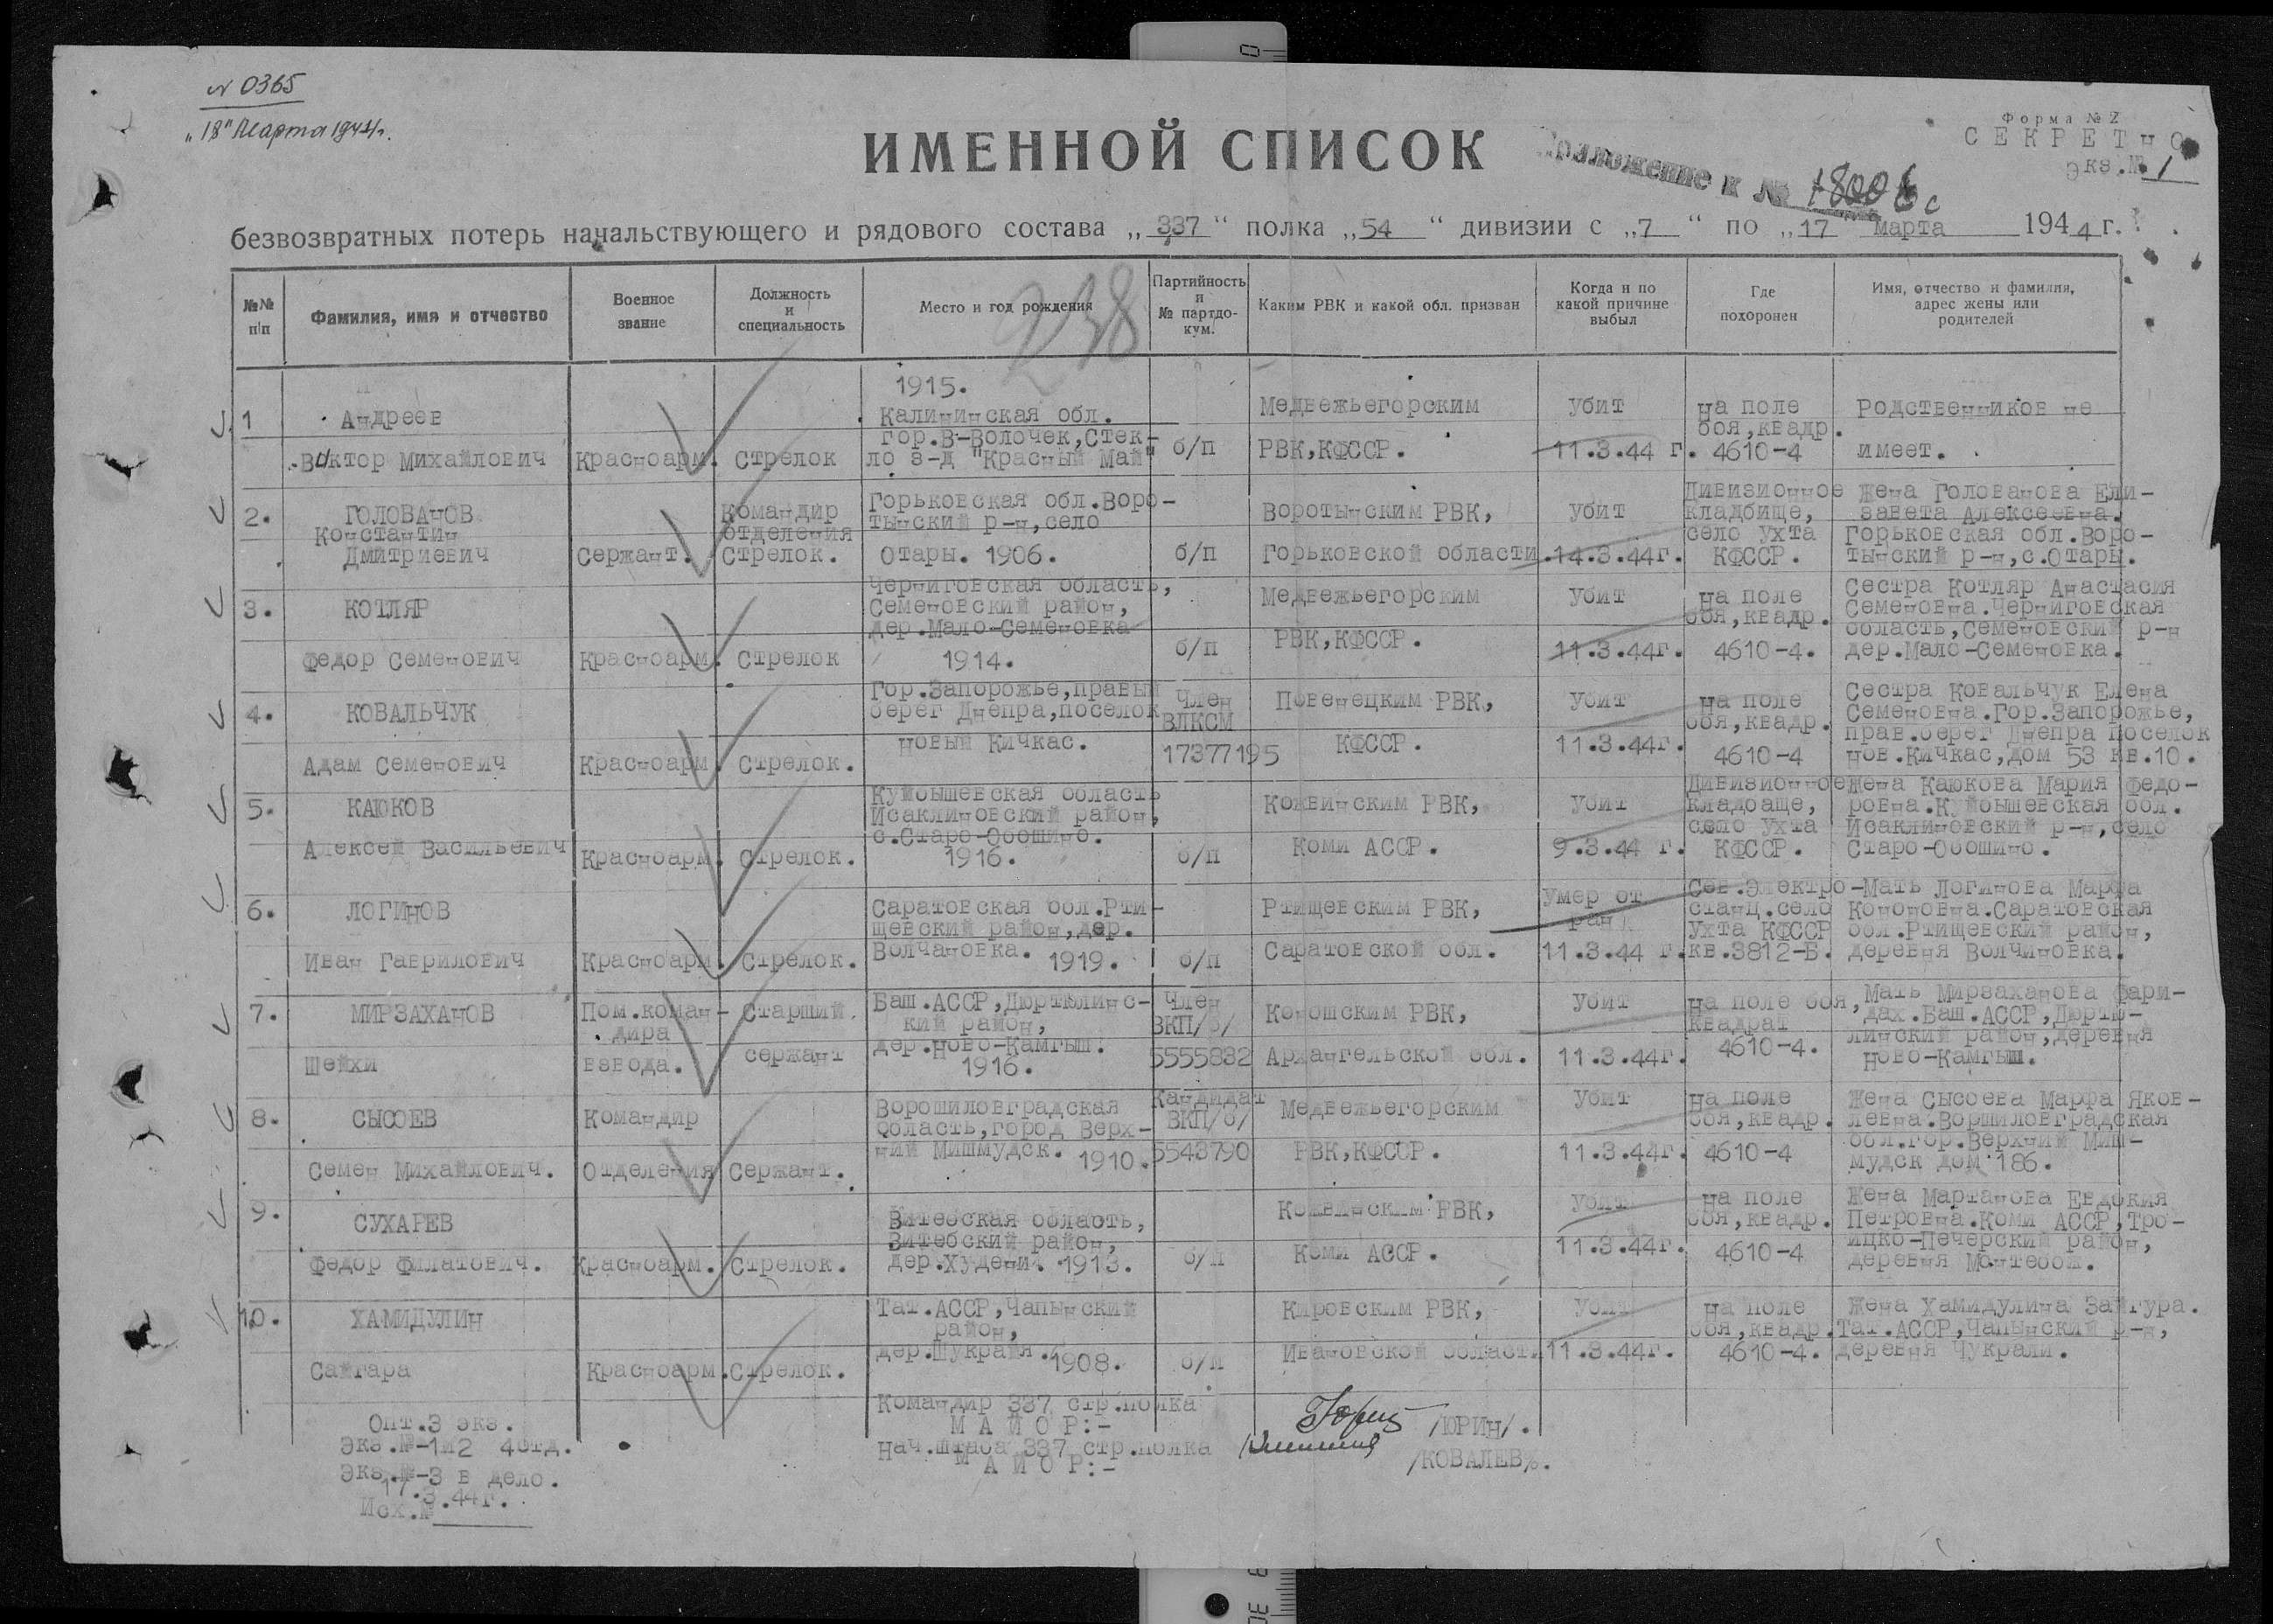 № 0365
„18" Марта 1944г.
Форма № 2
СЕКРЕТНО
Экз.№ 1
ИМЕННОЙ СПИСОК
Приложение к № 18006с
безвозвратных потерь начальствующего и рядового состава „337“ полка „54“ дивизии с „7“ по „17“ марта 1944 г.
238
№№ п/п
Фамилия, имя и отчество
Военное звание
Должность и специальность
Место и год рождения
Партийность и № партдокум.
Каким РВК и какой обл. призван
Когда и по какой причине выбыл
Где похоронен
Имя, отчество и фамилия, адрес жены или родителей
1
Андреев
Виктор Михайлович
Красноарм.
Стрелок
1915.
Калининская обл.
гор.В-Волочек,Стек-
ло з-д "Красный Май"
б/п
Медвежьегорским
РВК,КФССР.
убит
11.3.44 г.
на поле
боя,квадр.
4610-4
Родственников не
имеет.
2.
ГОЛОВАНОВ
Константин
Дмитриевич
Сержант.
Командир
отделения
Стрелок.
Горьковская обл.Воро-
тынский р-н,село
Отары. 1906.
б/п
Воротынским РВК,
Горьковской области.
убит
14.3.44г.
Дивизионное
кладбище,
село Ухта
КФССР.
Жена Голованова Ели-
завета Алексеевна.
Горьковская обл.Воро-
тынский р-н,с.Отары.
3.
КОТЛЯР
Федор Семенович
Красноарм.
Стрелок
Черниговская область,
Семеновский район,
дер.Мало-Семеновка
1914.
б/п
Медвежьегорским
РВК,КФССР.
убит
11.3.44г.
на поле
боя,квадр.
4610-4.
Сестра Котляр Анастасия
Семеновна.Черниговская
область,Семеновский р-н
дер.Мало-Семеновка.
4.
КОВАЛЬЧУК
Адам Семенович
Красноарм.
Стрелок.
Гор.Запорожье,правый
берег Днепра,поселок
новый Кичкас.
Член
ВЛКСМ
17377195
Повенецким РВК,
КФССР.
убит
11.3.44г.
на поле
боя,квадр.
4610-4
Сестра Ковальчук Елена
Семеновна.Гор.Запорожье,
прав.берег Днепра поселок
нов.Кичкас,дом 53 кв.10.
5.
КАЮКОВ
Алексей Васильевич
Красноарм.
Стрелок.
Куйбышевская область
Исаклиновский район,
с.Старо-Обошино.
1916.
б/п
Кожвинским РВК,
Коми АССР.
убит
9.3.44 г.
Дивизионное
кладбаще,
село Ухта
КФССР.
Жена Каюкова Мария Федо-
ровна.Куйбышевская обл.
Исаклиновский р-н,село
Старо-Обошино.
6.
ЛОГИНОВ
Иван Гаврилович
Красноарм.
Стрелок.
Саратовская обл.Рти-
щевский район,дер.
Волчановка. 1919.
б/п
Ртищевским РВК,
Саратовской обл.
Умер от
ран
11.3.44 г.
Сев.Электро-
станц.село
Ухта КФССР
кв.3812-Б.
Мать Логинова Марфа
Кононовна.Саратовская
обл.Ртищевский район,
деревня Волчиновка.
7.
МИРЗАХАНОВ
Шейхи
Пом.коман-
дира
взвода.
Старший
сержант
Баш.АССР,Дюртюлинс-
кий район,
дер.Ново-Камгыш.
1916.
Член
ВКП/б/
5555832
Коношским РВК,
Архангельской обл.
убит
11.3.44г.
На поле боя,
квадрат
4610-4.
Мать Мирзаханова Фари-
дах.Баш.АССР,Дюртю-
линский район,деревня
Ново-Камгыш.
8.
СЫСОЕВ
Семен Михайлович.
Командир
Отделения
Сержант.
Ворошиловградская
область,город Верх-
ний Мишмудск. 1910.
Кандидат
ВКП/б/
5543790
Медвежьегорским
РВК,КФССР.
убит
11.3.44г.
На поле
боя,квадр.
4610-4
Жена Сысоева Марфа Яков-
левна.Воршиловградская
обл.гор.Верхний Миш-
мудск дом 186.
9.
СУХАРЕВ
Федор Филатович.
Красноарм.
Стрелок.
Витебская область,
Витебский район,
дер.Худени. 1913.
б/п
Кожвинским РВК,
Коми АССР.
убит
11.3.44г.
на поле
боя,квадр.
4610-4
Жена Мартанова Евдокия
Петровна.Коми АССР,Тро-
ицко-Печерский район,
деревня Мантебож.
10.
ХАМИДУЛИН
Сайгара
Красноарм.
Стрелок.
Тат.АССР,Чапынский
район,
дер.Шукрали. 1908.
б/п
Кировским РВК,
Ивановской области
убит
11.3.44г.
на поле
боя,квадр.
4610-4.
Жена Хамидулина Зайгура.
Тат.АССР,Чапынский р-н,
деревня Чукрали.
Командир 337 стр.полка
МАЙОР:- /ЮРИН/.
Нач.штаба 337 стр.полка
МАЙОР:- /КОВАЛЕВ/.
Опт.3 экз.
Экз.№-1и2 4отд.
Экз.№-3 в дело.
17.3.44г.
Исх.№